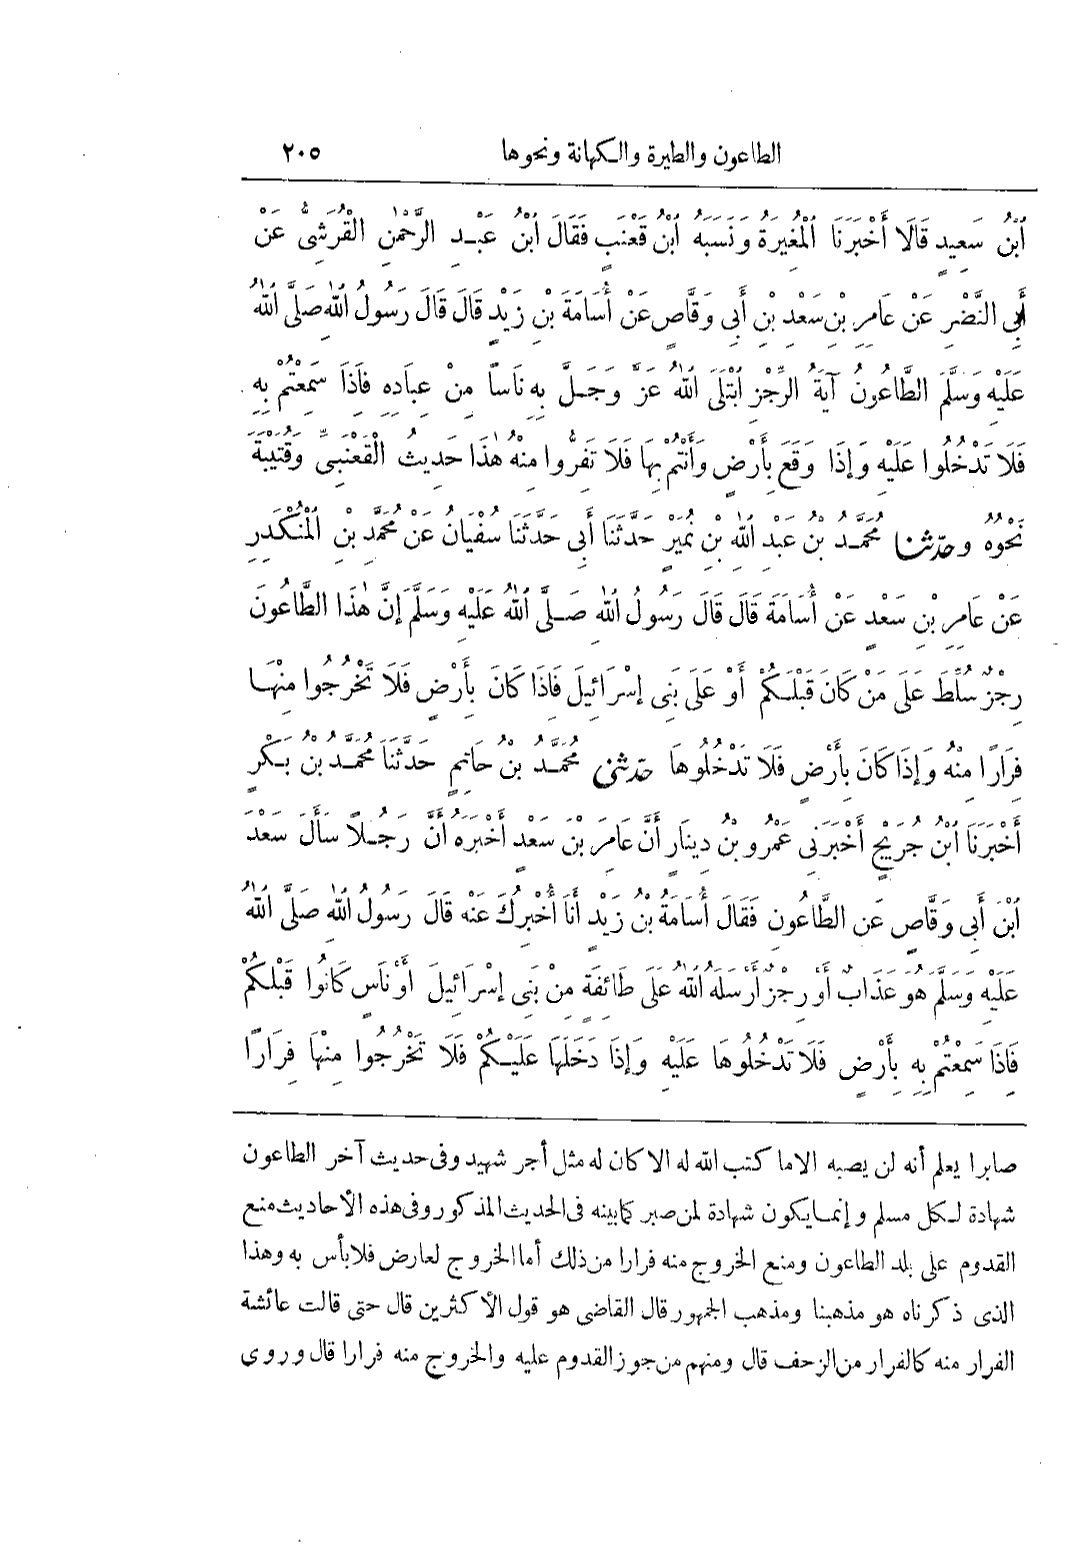 الطاعون والطيرة والكهانة ونحوها ٢٠٥
ٱبْنُ سَعِيدٍ قَالَا أَخْبَرَنَا ٱلْمُغِيرَةُ وَنَسَبَهُ ٱبْنُ قَعْنَبٍ فَقَالَ ٱبْنُ عَبْدِ الرَّحْمٰنِ الْقُرَشِىُّ عَنْ
أَبِى النَّضْرِ عَنْ عَامِرِ بْنِ سَعْدِ بْنِ أَبِى وَقَّاصٍ عَنْ أُسَامَةَ بْنِ زَيْدٍ قَالَ قَالَ رَسُولُ ٱللّٰهِ صَلَّى ٱللّٰهُ
عَلَيْهِ وَسَلَّمَ الطَّاعُونُ آيَةُ الرِّجْزِ ٱبْتَلَى ٱللّٰهُ عَزَّ وَجَلَّ بِهِ نَاسًا مِنْ عِبَادِهِ فَاذَا سَمِعْتُمْ بِهِ
فَلَا تَدْخُلُوا عَلَيْهِ وَإِذَا وَقَعَ بِأَرْضٍ وَأَنْتُمْ بِهَا فَلَا تَفِرُّوا مِنْهُ هٰذَا حَدِيثُ الْقَعْنَبِىِّ وَقُتَيْبَةَ
نَحْوُهُ و حدثنا مُحَمَّدُ بْنُ عَبْدِ ٱللّٰهِ بْنِ نُمَيْرٍ حَدَّثَنَا أَبِى حَدَّثَنَا سُفْيَانُ عَنْ مُحَمَّدِ بْنِ ٱلْمُنْكَدِرِ
عَنْ عَامِرِ بْنِ سَعْدٍ عَنْ أُسَامَةَ قَالَ قَالَ رَسُولُ ٱللّٰهِ صَلَّى ٱللّٰهُ عَلَيْهِ وَسَلَّمَ إِنَّ هٰذَا الطَّاعُونَ
رِجْزٌ سُلِّطَ عَلَى مَنْ كَانَ قَبْلَكُمْ أَوْ عَلَى بَنِى إِسْرَائِيلَ فَاذَا كَانَ بِأَرْضٍ فَلَا تَخْرُجُوا مِنْهَا
فِرَارًا مِنْهُ وَإِذَا كَانَ بِأَرْضٍ فَلَا تَدْخُلُوهَا حدثنى مُحَمَّدُ بْنُ حَاتِمٍ حَدَّثَنَا مُحَمَّدُ بْنُ بَكْرٍ
أَخْبَرَنَا ٱبْنُ جُرَيْجٍ أَخْبَرَنِى عَمْرُو بْنُ دِينَارٍ أَنَّ عَامِرَ بْنَ سَعْدٍ أَخْبَرَهُ أَنَّ رَجُلًا سَأَلَ سَعْدَ
ٱبْنَ أَبِى وَقَّاصٍ عَنِ الطَّاعُونِ فَقَالَ أُسَامَةُ بْنُ زَيْدٍ أَنَا أُخْبِرُكَ عَنْهُ قَالَ رَسُولُ ٱللّٰهِ صَلَّى ٱللّٰهُ
عَلَيْهِ وَسَلَّمَ هُوَ عَذَابٌ أَوْ رِجْزٌ أَرْسَلَهُ ٱللّٰهُ عَلَى طَائِفَةٍ مِنْ بَنِى إِسْرَائِيلَ أَوْ نَاسٍ كَانُوا قَبْلَكُمْ
فَاذَا سَمِعْتُمْ بِهِ بِأَرْضٍ فَلَا تَدْخُلُوهَا عَلَيْهِ وَإِذَا دَخَلَهَا عَلَيْكُمْ فَلَا تَخْرُجُوا مِنْهَا فِرَارًا
صابرا يعلم أنه لن يصيبه الا ما كتب الله له الا كان له مثل أجر شهيد وفى حديث آخر الطاعون
شهادة لكل مسلم وإنما يكون شهادة لمن صبر كما بينه فى الحديث المذكور وفى هذه الأحاديث منع
القدوم على بلد الطاعون ومنع الخروج منه فرارا من ذلك أما الخروج لعارض فلا بأس به وهذا
الذى ذكرناه هو مذهبنا ومذهب الجمهور قال القاضى هو قول الأكثرين قال حتى قالت عائشة
الفرار منه كالفرار من الزحف قال ومنهم من جوز القدوم عليه والخروج منه فرارا قال وروى